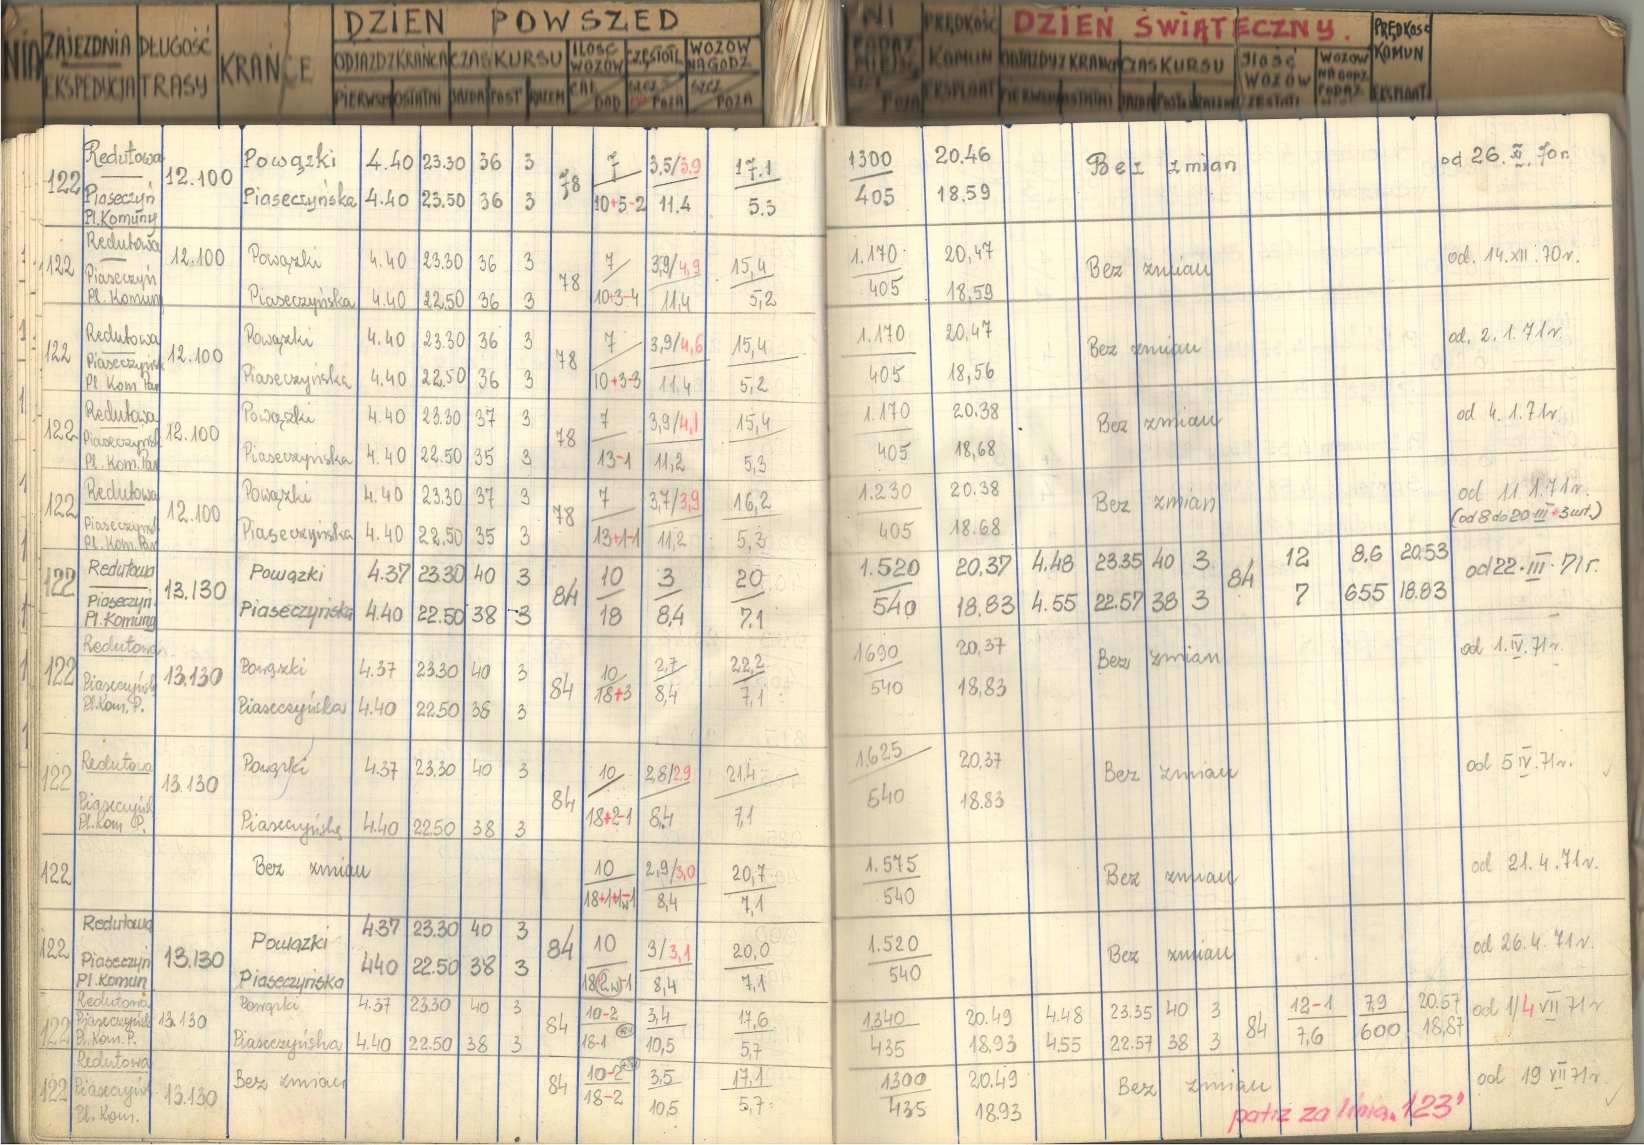 ZAJEZDNIA DŁUGOŚĆ KRAŃCE DZIEŃ POWSZED
EKSPEDYCJA TRASY ODJAZD Z KRAŃCA CZAS KURSU ILOŚĆ WOZÓW CZĘSTOTL WOZÓW NA GODZ
PIERWSZY OSTATNI JAZDA POST RAZEM CAŁ DOD SZCZ POZA SZCZ POZA
PRĘDKOŚĆ KOMUN EKSPLOAT DZIEŃ ŚWIĄTECZNY. PRĘDKOŚĆ KOMUN EKSPLOAT
ODJAZDY Z KRAŃCA CZAS KURSU ILOŚĆ WOZÓW WOZÓW NA GODZ
PIERWSZY OSTATNI JAZDA POST RAZEM
122 Redutowa 12.100 Powązki 4.40 23.30 36 3 78 7 3,5/3,9 17.1 1300 20.46 Bez zmian od 26. XI. 70r.
Piaseczyń Piaseczyńska 4.40 23.50 36 3 10+5-2 11.4 5.3 405 18.59
Pl. Komuny
122 Redutowa 12.100 Powązki 4.40 23.30 36 3 78 7 3,9/4,9 15,4 1.170 20,47 Bez zmian od. 14.XII.70r.
Piaseczyń Piaseczyńska 4.40 22.50 36 3 10+3-4 11,4 5,2 405 18,59
Pl. Komun
122 Redutowa 12.100 Powązki 4.40 23.30 36 3 78 7 3,9/4,6 15,4 1.170 20,47 Bez zmian od. 2.1.71r.
Piaseczyńsk Piaseczyńska 4.40 22.50 36 3 10+3-3 11.4 5,2 405 18,56
Pl. Kom Par
122 Redutowa 12.100 Powązki 4.40 23.30 37 3 78 7 3,9/4,1 15,4 1.170 20.38 Bez zmian od 4.1.71r.
Piaseczyńsk Piaseczyńska 4.40 22.50 35 3 13-1 11,2 5,3 405 18,68
Pl. Kom. Par
122 Redutowa 12.100 Powązki 4.40 23.30 37 3 78 7 3,7/3,9 16,2 1.230 20.38 Bez zmian od 11.1.71r.
Piaseczyńsk Piaseczyńska 4.40 22.50 35 3 13+1-1 11,2 5,3 405 18.68 (od 8 do 20.III+3wt.)
Pl. Kom. Par
122 Redutowa 13.130 Powązki 4.37 23.30 40 3 84 10 3 20 1.520 20,37 4.48 23.35 40 3 84 12 8.6 20.53 od 22.III.71r.
Piaseczyń. Piaseczyńska 4.40 22.50 38 3 18 8,4 7.1 540 18.83 4.55 22.57 38 3 7 655 18.83
Pl. Komuny
122 Redutowa 13.130 Powązki 4.37 23.30 40 3 84 10 2,7 22,2 1690 20,37 Bez zmian od 1.IV.71r.
Piaseczyńsk Piaseczyńska 4.40 22.50 38 3 18+3 8,4 7,1 540 18,83
Pl. Kom. P.
122 Redutowa 13.130 Powązki 4.37 23.30 40 3 84 10 2,8/2,9 21,4 1.625 20,37 Bez zmian od 5 IV.71r.
Piaseczyńsk Piaseczyńska 4.40 22.50 38 3 18+2-1 8,4 7,1 540 18.83
Pl. Kom P.
122 Bez zmian 10 2,9/3,0 20,7 1.575 Bez zmian od 21.4.71r.
18+1+1w-1 8,4 7,1 540
122 Redutowa 13.130 Powązki 4.37 23.30 40 3 84 10 3/3,1 20,0 1.520 Bez zmian od 26.4.71r.
Piaseczyń Piaseczyńska 4.40 22.50 38 3 18(2w)-1 8,4 7,1 540
Pl. Komun
122 Redutowa 13.130 Powązki 4.37 23.30 40 3 84 10-2 3,4 17,6 1.340 20.49 4.48 23.35 40 3 84 12-1 7,9 20.57 od 1/4 VII 71r
Piaseczyńsk Piaseczyńska 4.40 22.50 38 3 18-1 10,5 5,7 435 18,93 4.55 22.57 38 3 7,6 600 18,87
Pl. Kom. P.
122 Redutowa 13.130 Bez zmian 84 10-2 3,5 17,1 1300 20.49 Bez zmian od 19 VII 71r.
Piaseczyńs 18-2 10,5 5,7 435 18.93
Pl. Kom.
patrz za linią „123"